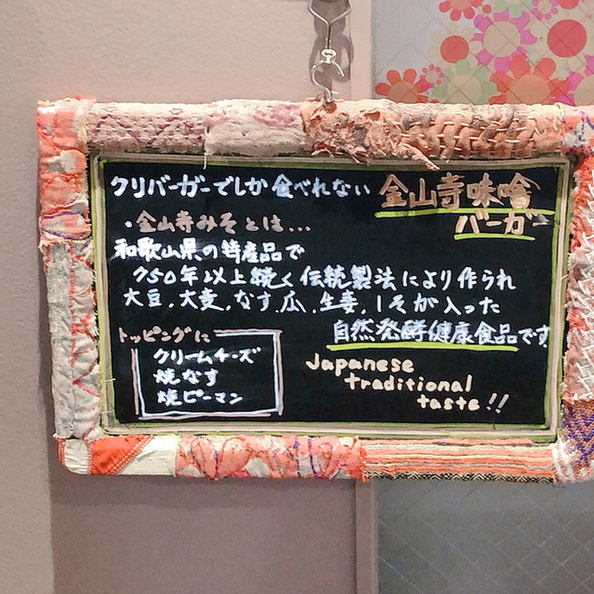 クリバーガーでしか食べれない 金山寺味噌
バーガー
・金山寺みそとは...
和歌山県の特産品で
750年以上続く伝統製法により作られ
大豆,大麦,なす,瓜,生姜,しそが入った
自然発酵健康食品です
トッピングに
クリームチーズ
焼なす
焼ピーマン
Japanese
traditional
taste!!